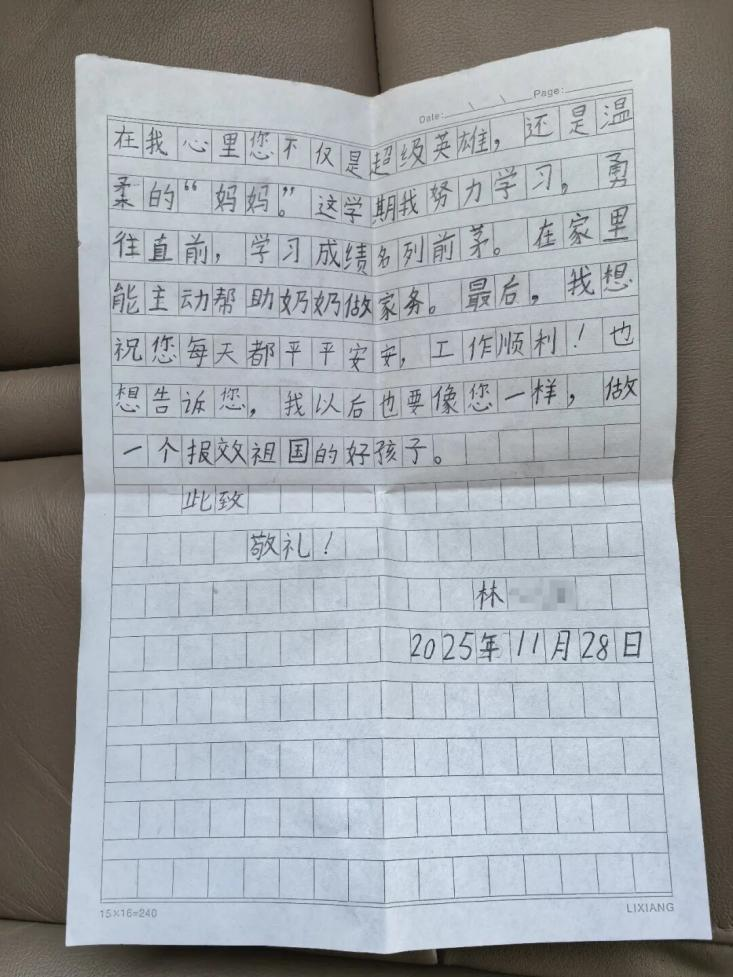 Date: Page:
在我心里您不仅是超级英雄，还是温
柔的“妈妈。”这学期我努力学习，勇
往直前，学习成绩名列前茅。在家里
能主动帮助奶奶做家务。最后，我想
祝您每天都平平安安，工作顺利！也
想告诉您，我以后也要像您一样，做
一个报效祖国的好孩子。
此致
敬礼！
林
2025年11月28日
15×16=240 LIXIANG